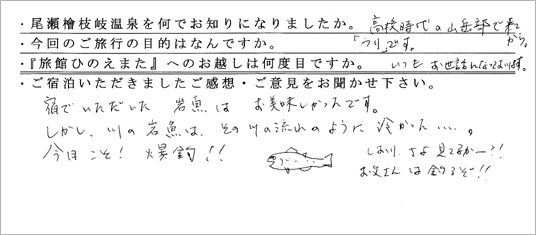 ・尾瀬檜枝岐温泉を何でお知りになりましたか。 高校時代の山岳部で来てから。
・今回のご旅行の目的はなんですか。 「つり」です。
・『旅館ひのえまた』へのお越しは何度目ですか。 いつもお世話になっております。
・ご宿泊いただきましたご感想・ご意見をお聞かせ下さい。
宿でいただいた 岩魚は お美味しかったです。
しかし、川の岩魚は、その川の流れのように 冷かった‥‥。
今日こそ! 爆釣!!
見てるかー?!
お父さんは釣るぞ!!